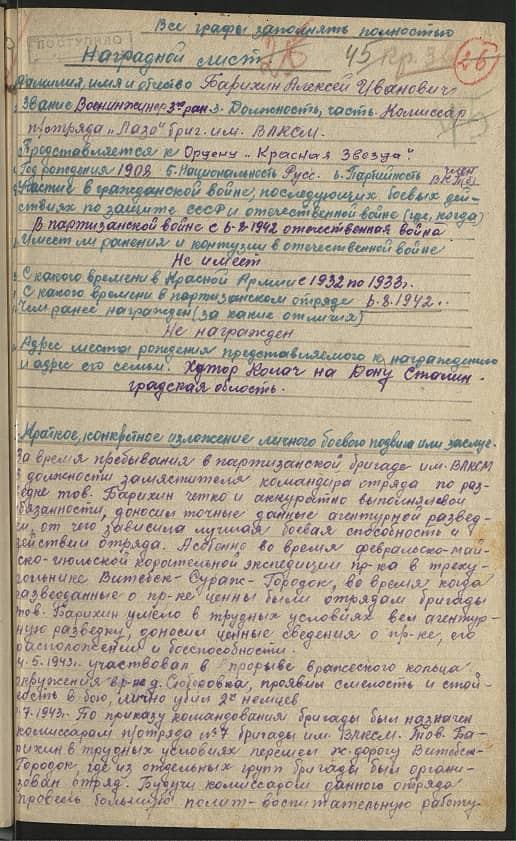 Все графы заполнять полностью
ПОСТУПИЛО
Наградной лист
45 кр. 3
26
Фамилия, имя и отчество Барихин Алексей Иванович
Звание Военинженер 3го ран. 3. Должность, часть. Комиссар
п/отряда "Лазо" бриг. им. ВЛКСМ.
Представляется к Ордену "Красная Звезда".
Год рождения 1908 5. Национальность Русс. 6. Партийность член ВКП(б)
Участие в гражданской войне, последующих боевых дей-
ствиях по защите СССР и отечественной войне (где, когда)
В партизанской войне с 6-8-1942 отечественная война
Имеет ли ранения и контузии в отечественной войне
Не имеет
С какого времени в Красной Армии с 1932 по 1933 г.
С какого времени в партизанском отряде 6.8.1942 г.
Чем ранее награжден (за какие отличия)
Не награжден
Адрес места рождения представляемого к награждению
и адрес его семьи. Хутор Колач на Дону Сталин-
градская область.
Краткое, конкретное изложение личного боевого подвига или заслуг.
За время пребывания в партизанской бригаде им. ВЛКСМ
в должности заместителя командира отряда по раз-
ведке тов. Барихин четко и аккуратно выполнял свои
обязанности, доносил точные данные агентурной развед-
ки, от чего зависила лучшая боевая способность и
действии отряда. Особенно во время февральско-май-
ско-июльской карательной экспедиции пр-ка в треу-
гольнике Витебск-Сураж-Городок, во время когда
разведданные о пр-ке ценны были отрядам бригады
тов. Барихин умело в трудных условиях вел агентур-
ную разведку, доносил ценные сведения о пр-ке, его
расположении и боеспособности.
5.1943 г. участвовал в прорыве вражеского кольца
окружения в р-не д. проявил смелость и стой-
кость в бою, лично убил 2х немцев
7.1943 г. По приказу командования бригады был назначен
комиссаром п/отряда №7 бригады им. ВЛКСМ. Тов. Ба-
рихин в трудных условиях перешел ж-дорогу Витебск-
Городок, где из отдельных групп бригады был органи-
зован отряд. Будучи комиссаром данного отряда
провел большую полит-воспитательную работу